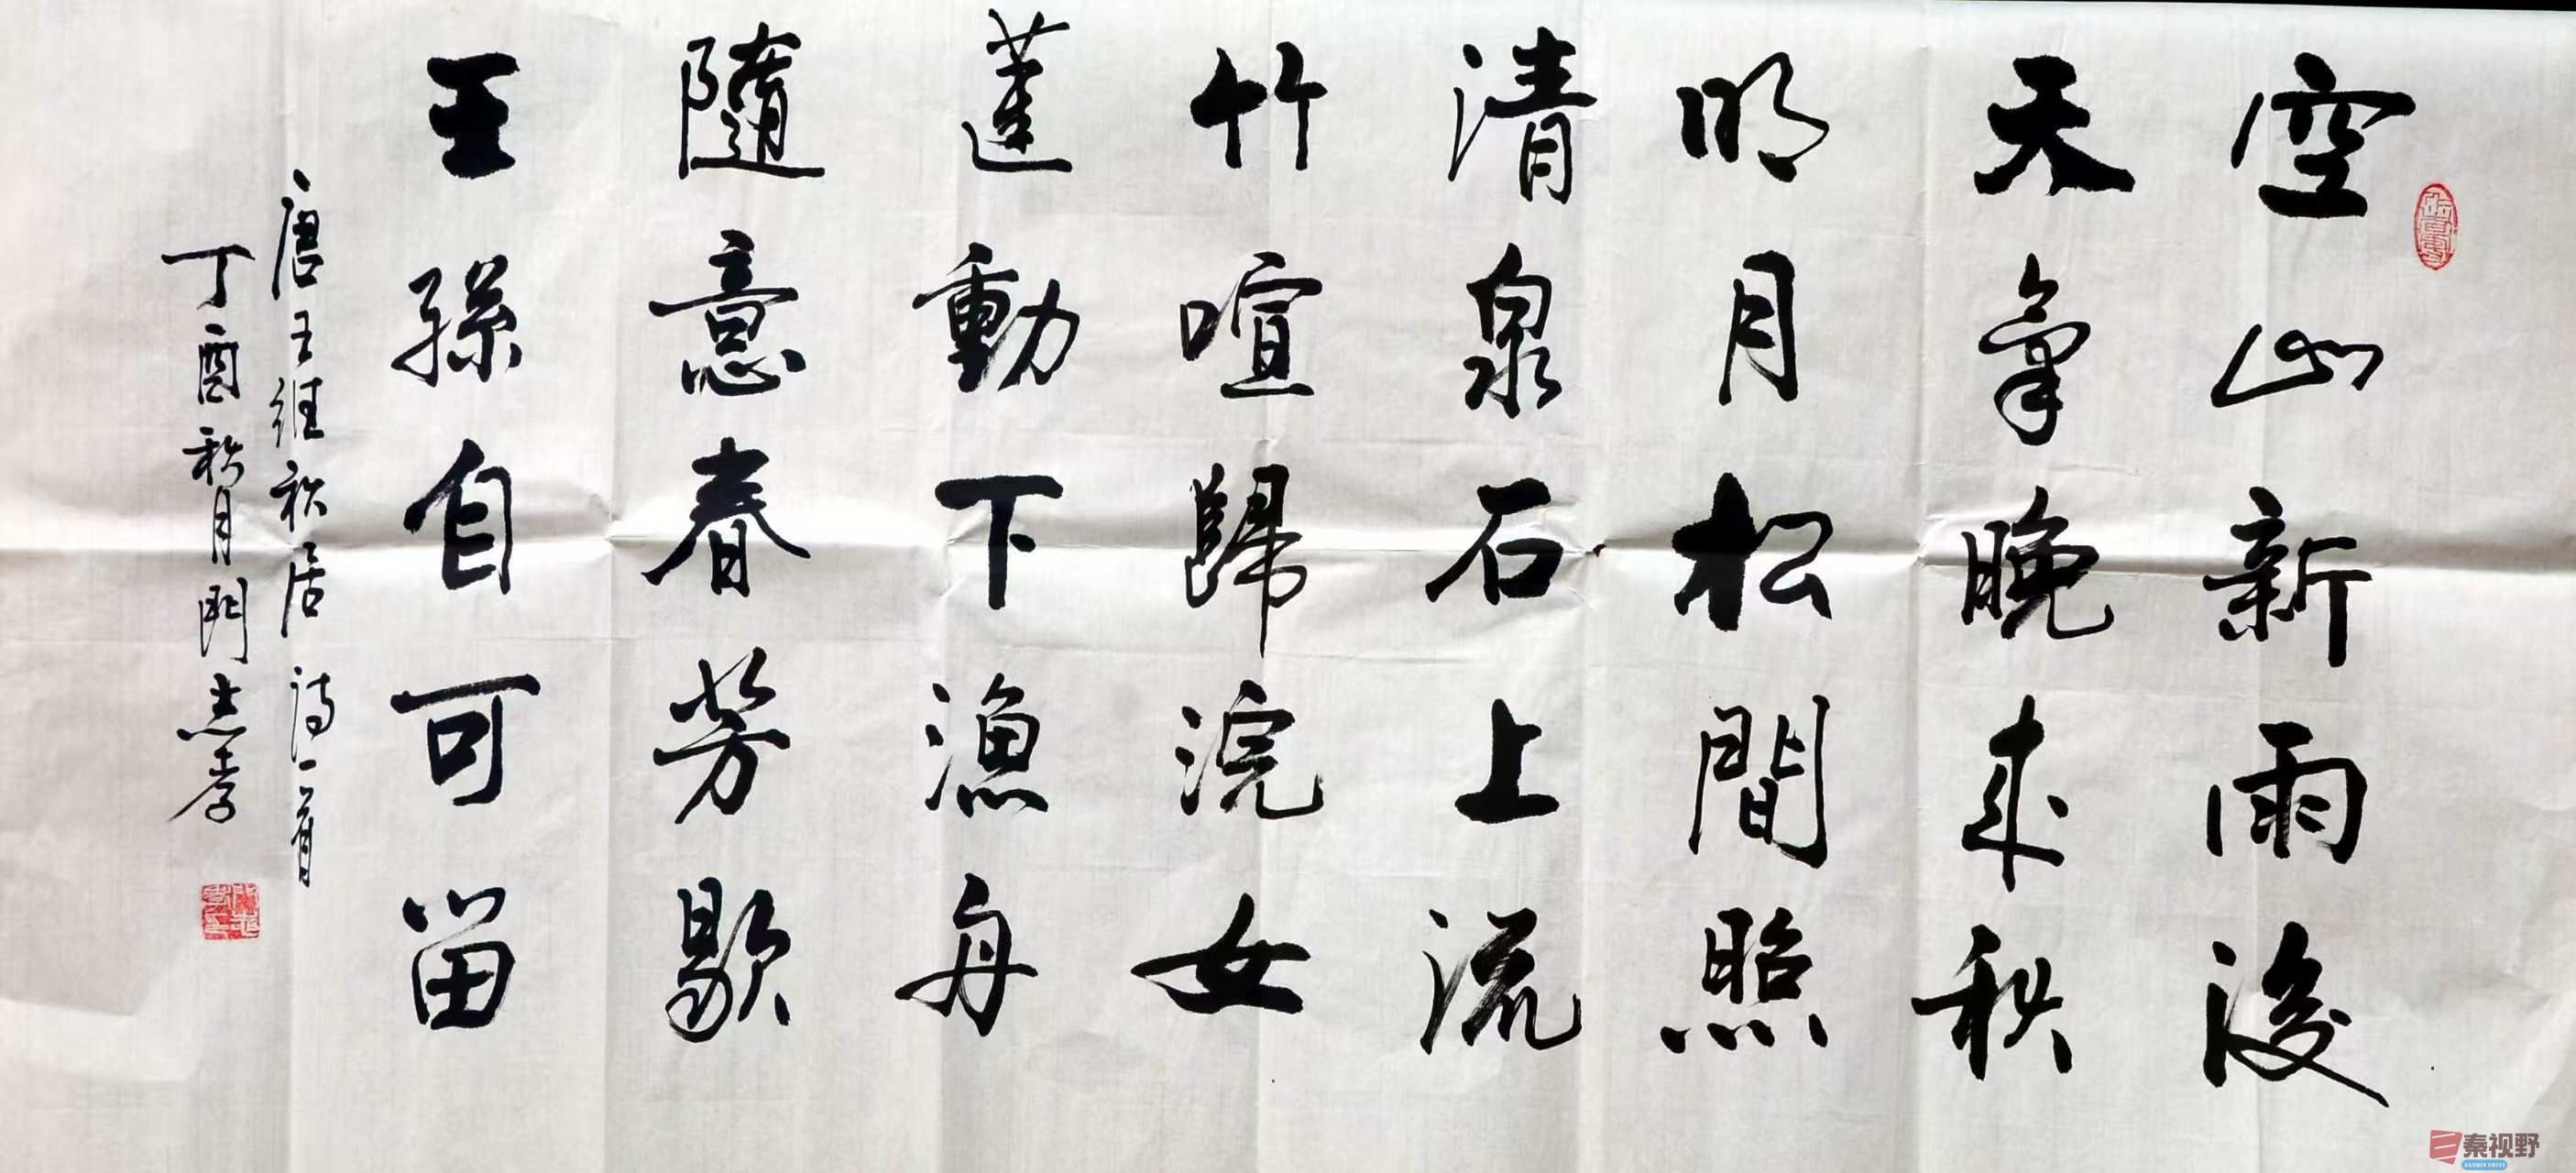 空山新雨後
天氣晚来秋
明月松間照
清泉石上流
竹喧歸浣女
蓮動下漁舟
隨意春芳歇
王孫自可留
唐王維秋居詩一首
丁酉秋月門志孝
秦视野